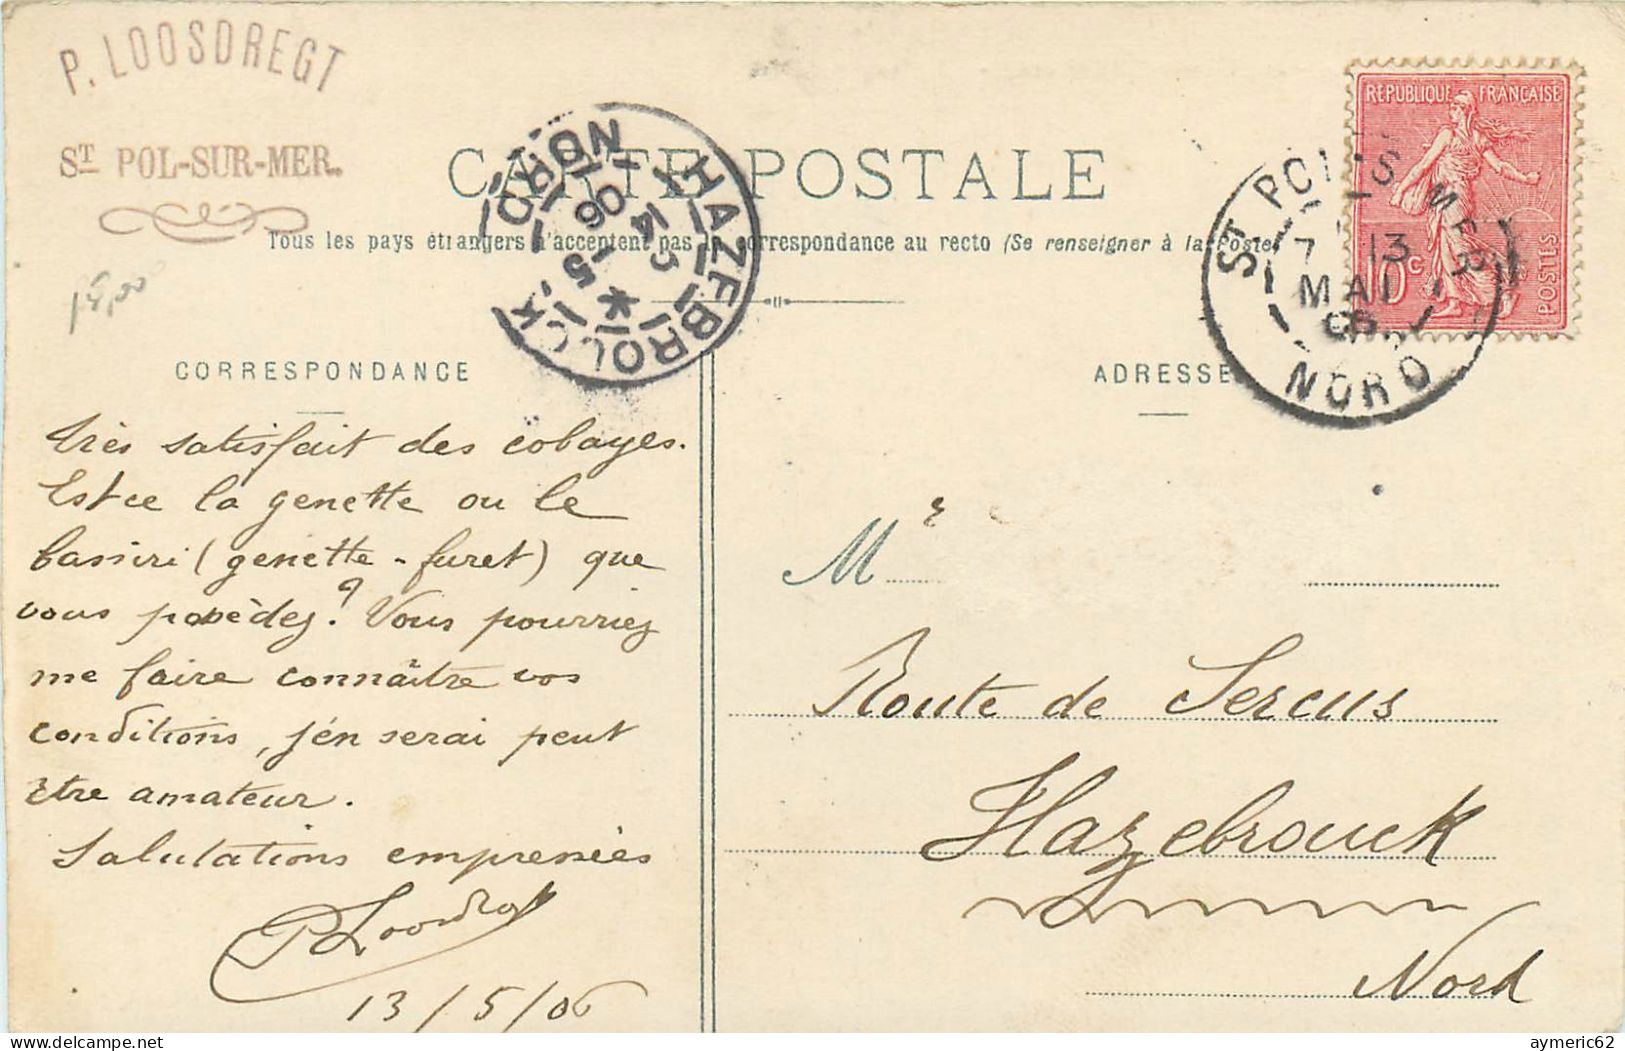 P. LOOSDREGT
ST POL-SUR-MER.
CARTE POSTALE
Tous les pays étrangers n'acceptent pas la correspondance au recto (Se renseigner à la Poste)
RÉPUBLIQUE FRANÇAISE
10c
POSTES
ST POL-S-MER
7 13
MAI
06
NORD
HAZEBROUCK
NORD
14 5
06
15,00
CORRESPONDANCE
ADRESSE
Très satisfait des cobayes.
Est ce la genette ou le
bassiri (genette-furet) que
vous possèdez? Vous pourriez
me faire connaître vos
conditions, j'én serai peut
être amateur.
Salutations empressées
P Loosdregt
13/5/06
Mr
Route de Sercus
Hazebrouck
Nord
aymeric62